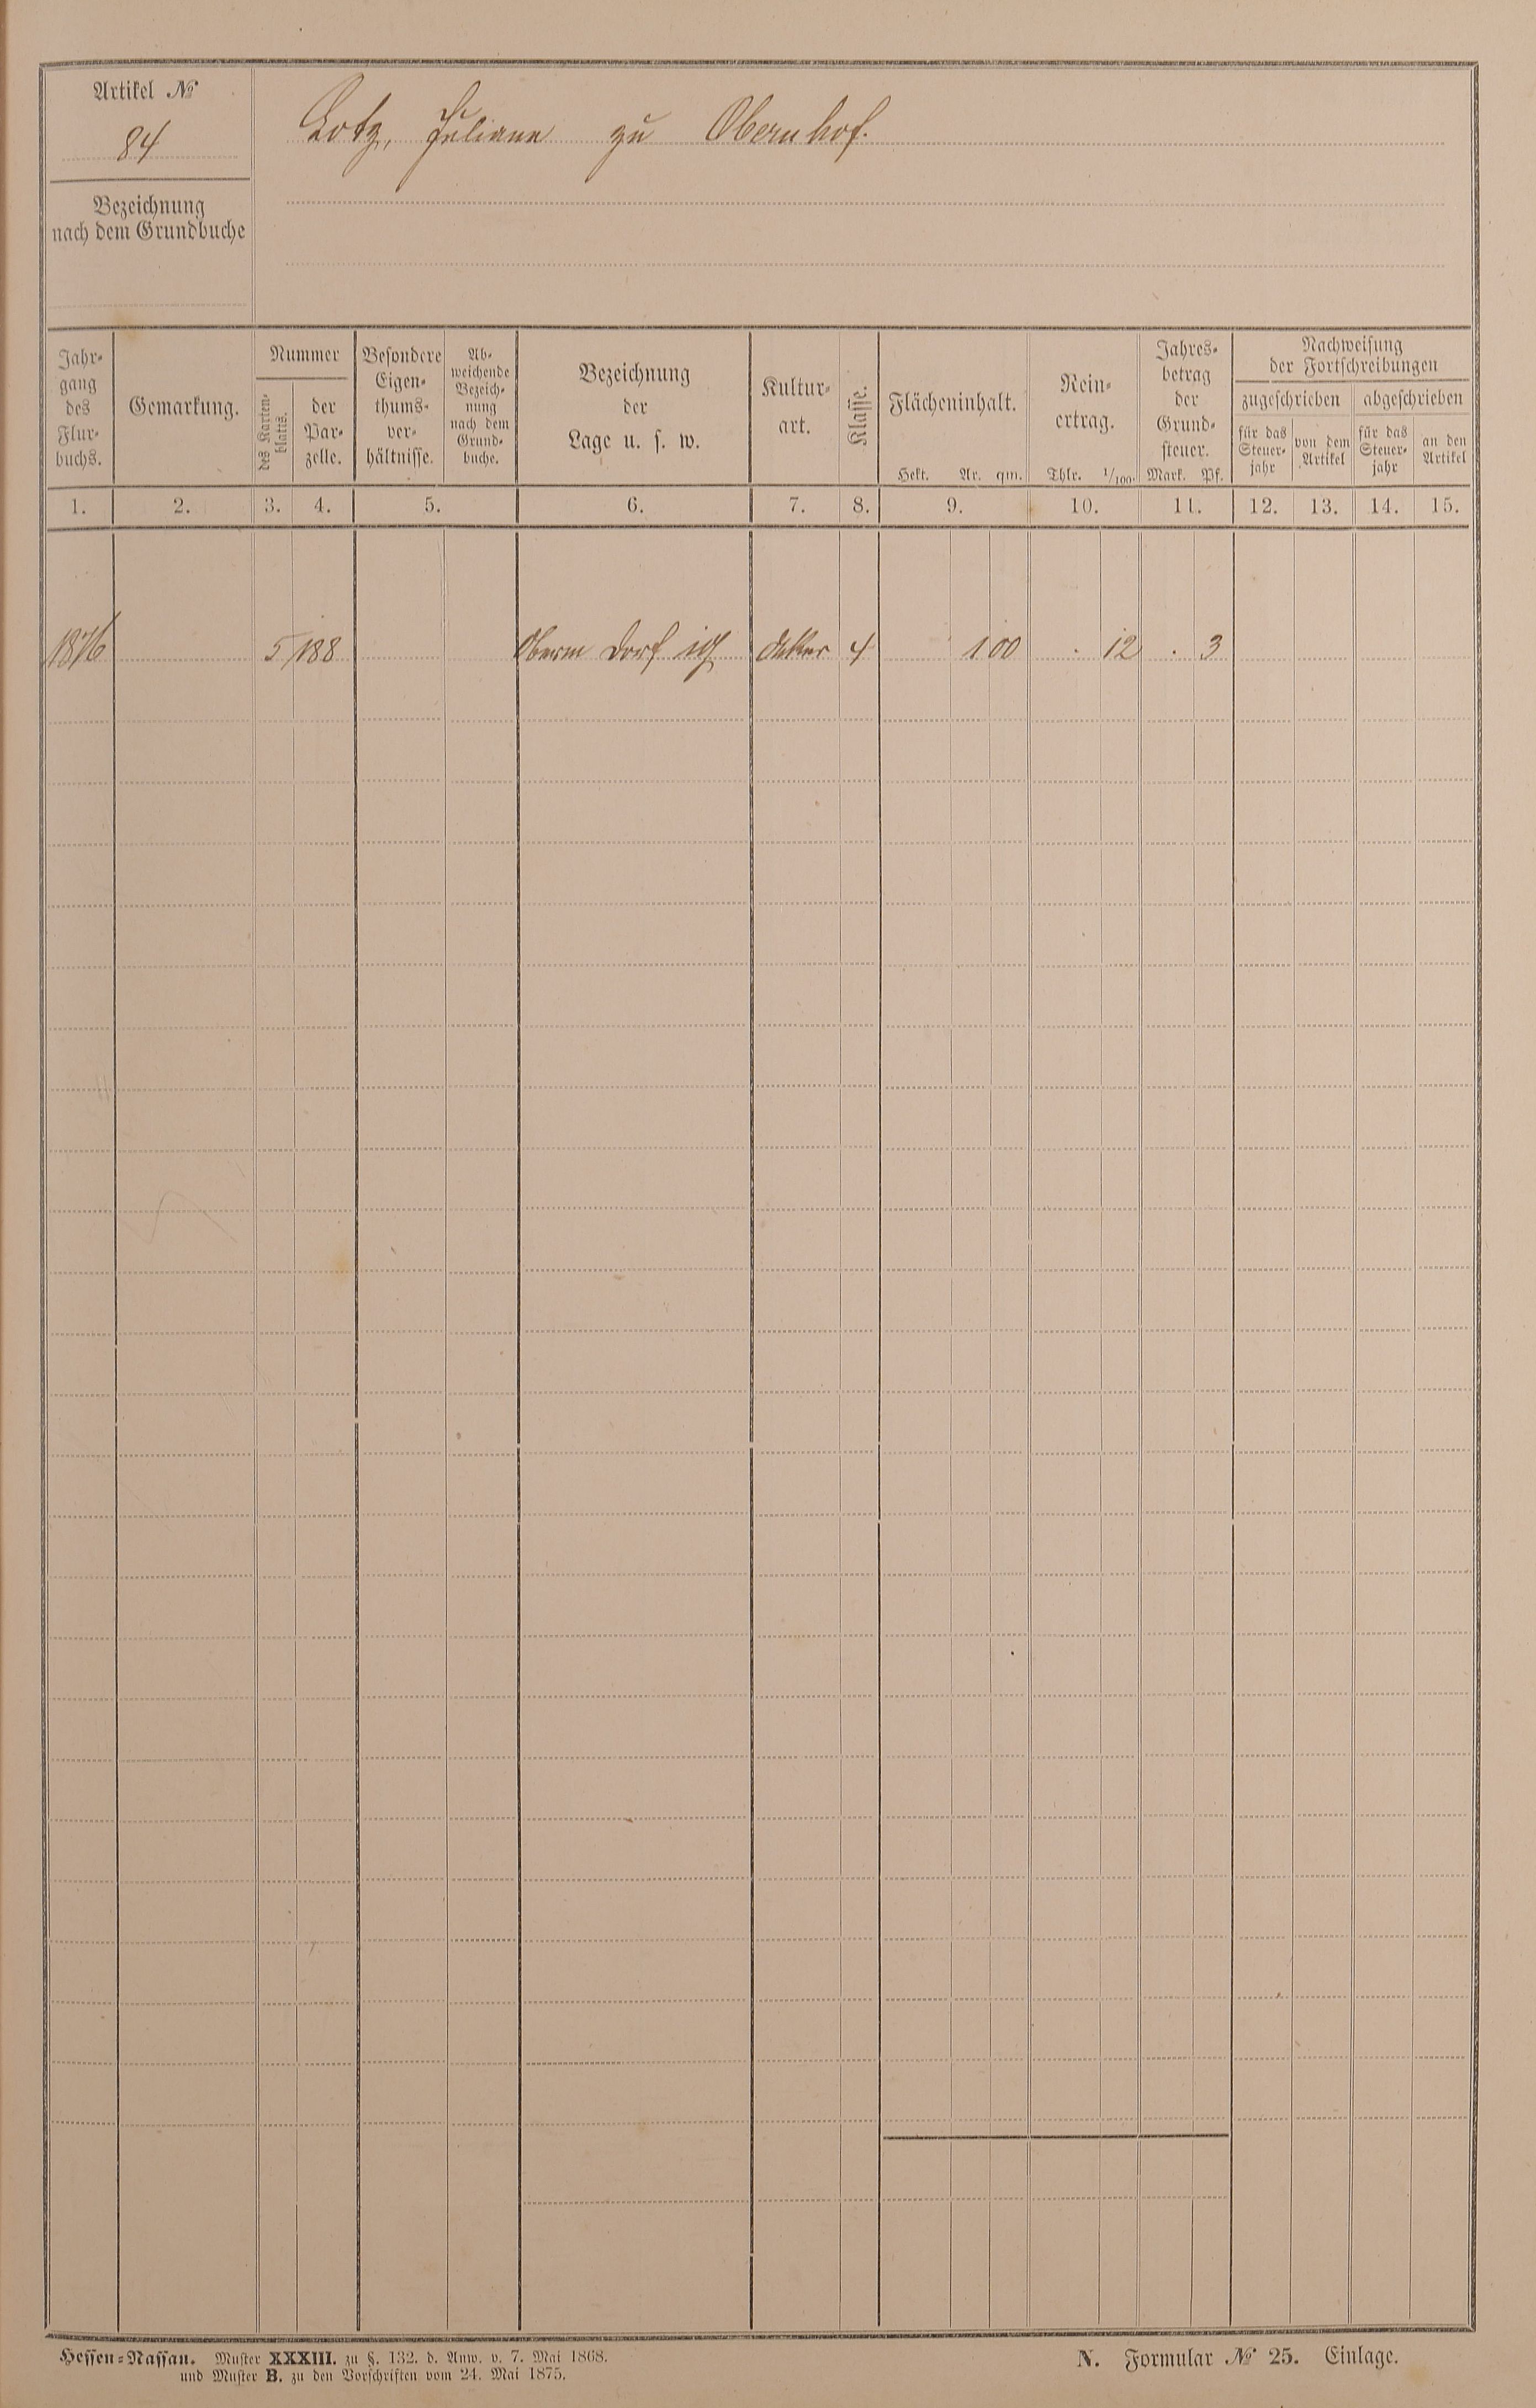 Artikel №
84
Lotz, Juliane zu Obernhof.
Bezeichnung
nach dem Grundbuche
Jahr-
gang
des
Flur-
buchs.
Gemarkung.
Nummer
des Karten-
blatts.
der
Par-
zelle.
Besondere
Eigen-
thums-
ver-
hältnisse.
Ab-
weichende
Bezeich-
nung
nach dem
Grund-
buche.
Bezeichnung
der
Lage u. s. w.
Kultur-
art.
Klasse.
Flächeninhalt.
Hekt. Ar. qm.
Rein-
ertrag.
Thlr. 1/100.
Jahres-
betrag
der
Grund-
steuer.
Mark. Pf.
Nachweisung
der Fortschreibungen
zugeschrieben abgeschrieben
für das
Steuer-
jahr
von dem
Artikel
für das
Steuer-
jahr
an den
Artikel
1. 2. 3. 4. 5. 6. 7. 8. 9. 10. 11. 12. 13. 14. 15.
1876 5 188 Oberm Dorf Acker 4 1 00 . 12 . 3
Hessen-Nassau. Muster XXXIII. zu §. 132. d. Anw. v. 7. Mai 1868.
und Muster B. zu den Vorschriften vom 24. Mai 1875.
N. Formular № 25. Einlage.